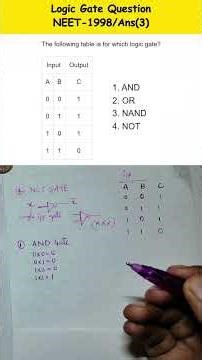 Logic Gate Question
NEET-1998/Ans(3)
The following table is for which logic gate?
Input Output
A B C
0 0 1
0 1 1
1 0 1
1 1 0
1. AND
2. OR
3. NAND
4. NOT
NOT GATE
A B C
0 0 1
0 1 1
1 0 1
1 1 0
AND Gate
0x0=0
0x1=0
1x0=0
1x1=1